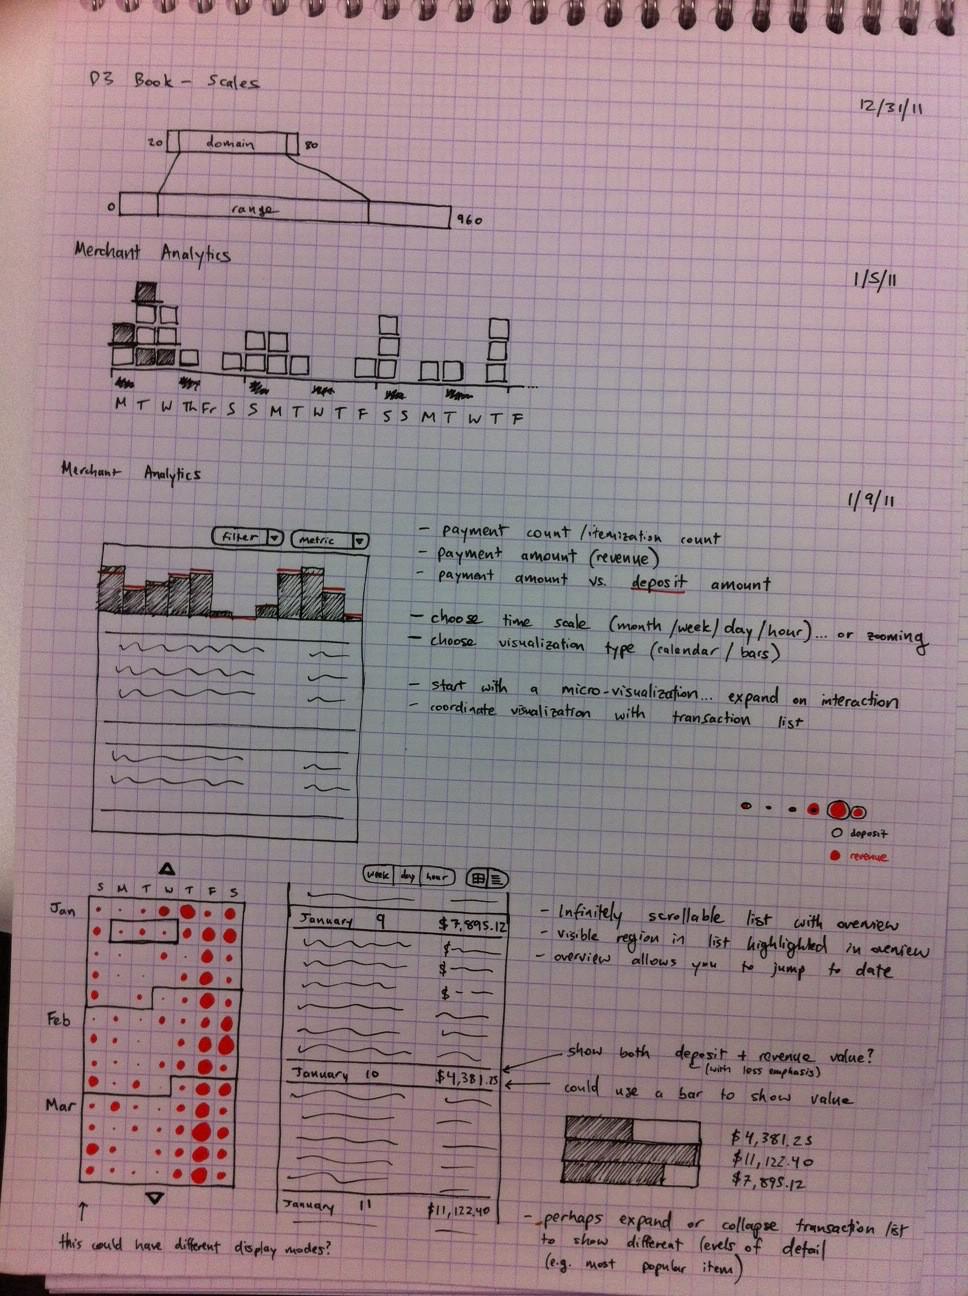 D3 Book - Scales
12/31/11
20 domain 80
0 range 960
Merchant Analytics
1/5/11
M T W Th Fr S S M T W T F S S M T W T F
Merchant Analytics
1/9/11
Filter Metric
- payment count/itemization count
- payment amount (revenue)
- payment amount vs. deposit amount
- choose time scale (month/week/day/hour)... or zooming
- choose visualization type (calendar/bars)
- start with a micro-visualization... expand on interaction
- coordinate visualization with transaction list
deposit
revenue
week day hour
S M T W T F S
Jan
Feb
Mar
January 9 $7,895.12
$
$
$
January 10 $4,381.25
January 11 $11,122.40
- Infinitely scrollable list with overview
- visible region in list highlighted in overview
- overview allows you to jump to date
show both deposit + revenue value?
(with less emphasis)
could use a bar to show value
$4,381.25
$11,122.40
$7,895.12
- perhaps expand or collapse transaction list
to show different levels of detail
(e.g. most popular item)
this could have different display modes?